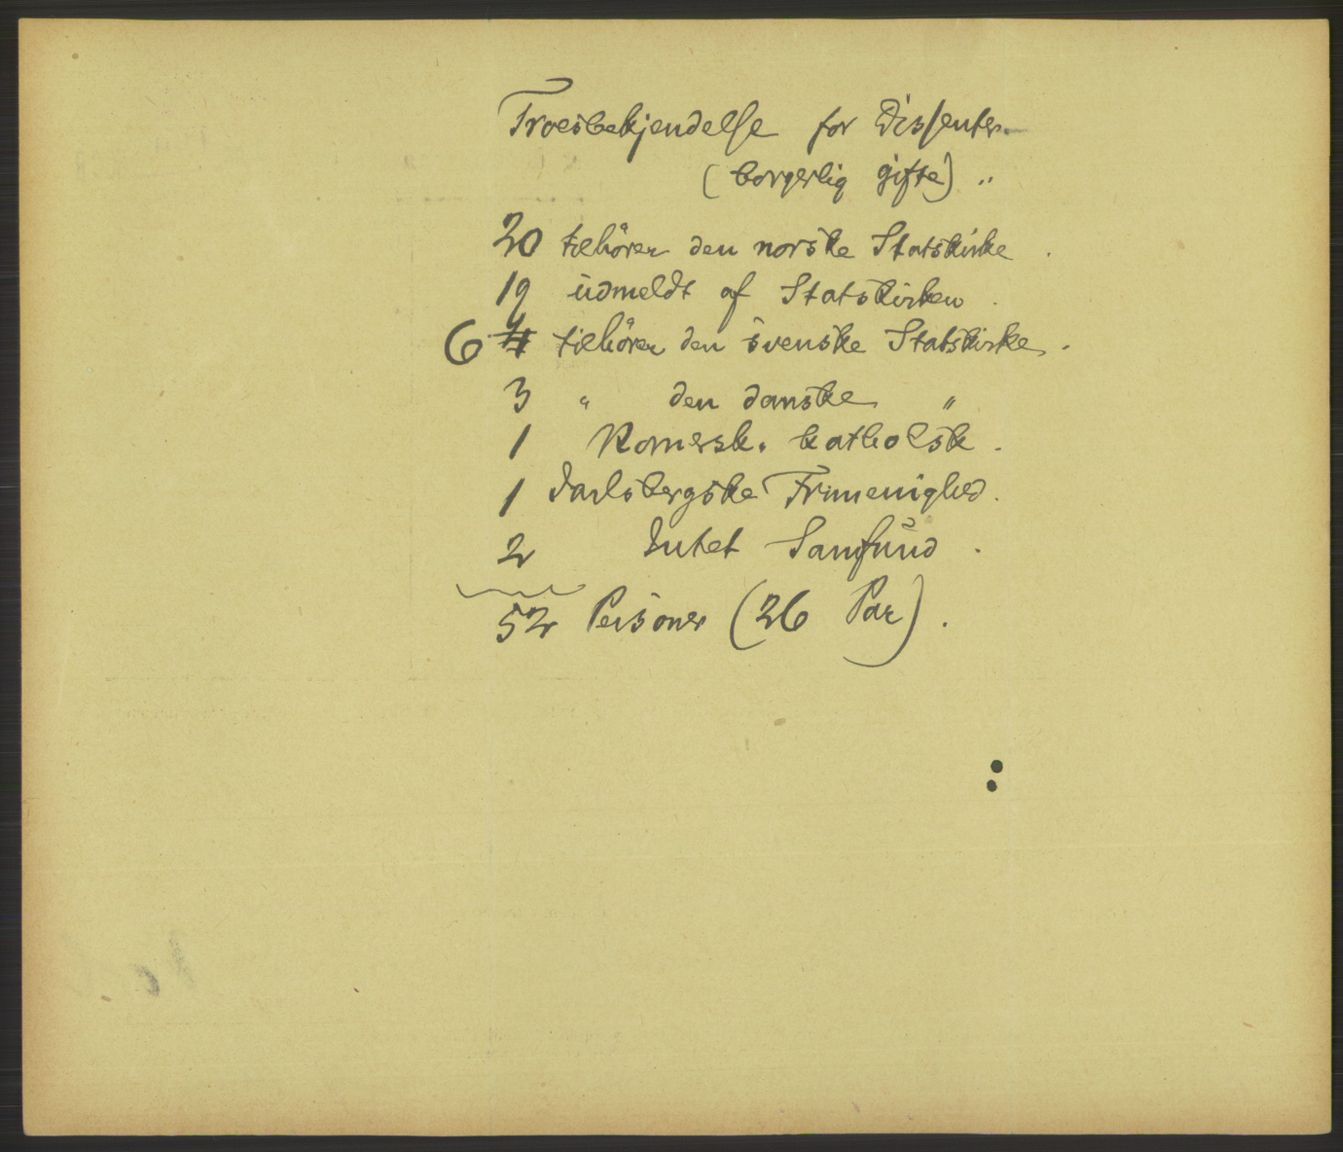 Troesbekjendelse for Dissenter
(borgerlig gifte) "
20 tilhörer den norske Statskirke.
19 udmeldt af Statskirken.
6 tilhörer den svenske Statskirke.
3 " den danske "
1 Romersk. katholsk.
1 Jarlsbergske Frimenighed.
2 Intet Samfund.
52 Personer (26 Par).